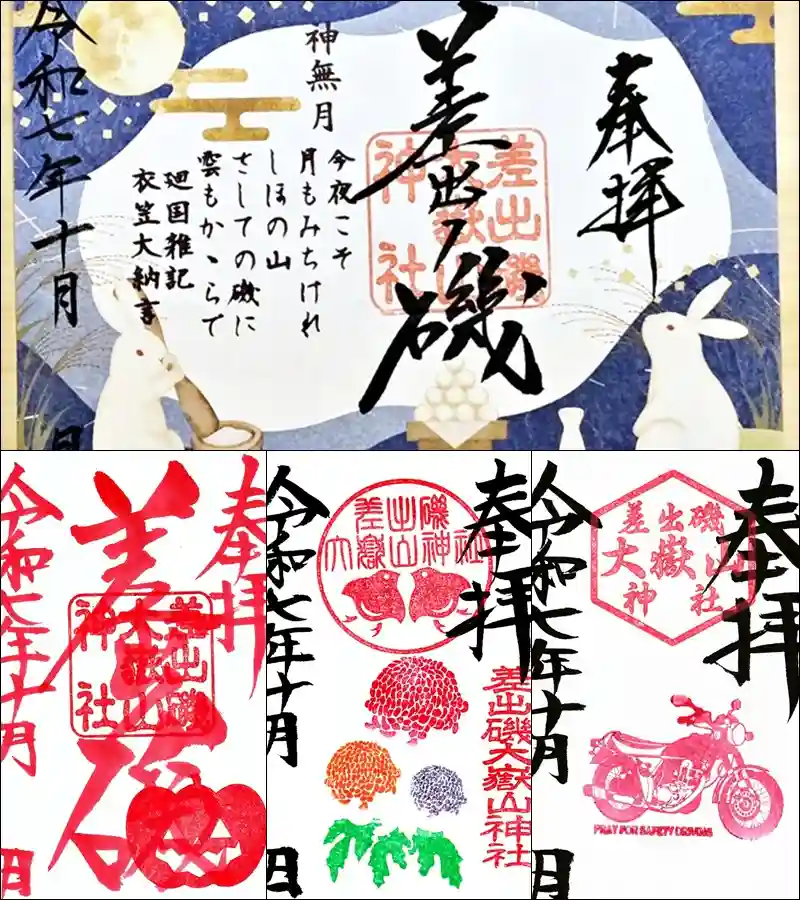 奉拝
差出ノ磯
差出磯
大嶽山
神社
神無月
今夜こそ
月もみちけれ
しほの山
さしての磯に
雲もかゝらで
廻国雑記
衣笠大納言
令和七年十月
日
奉拝
差出磯
差出磯
大嶽山
神社
令和七年十月
日
奉拝
差出磯
大嶽山神社
差出磯大嶽山神社
令和七年十月
日
奉拝
差出磯
大嶽山
神社
PRAY FOR SAFETY DRIVING
令和七年十月
日